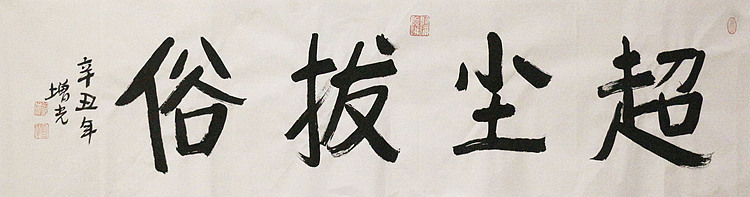 超尘拔俗
辛丑年
增光